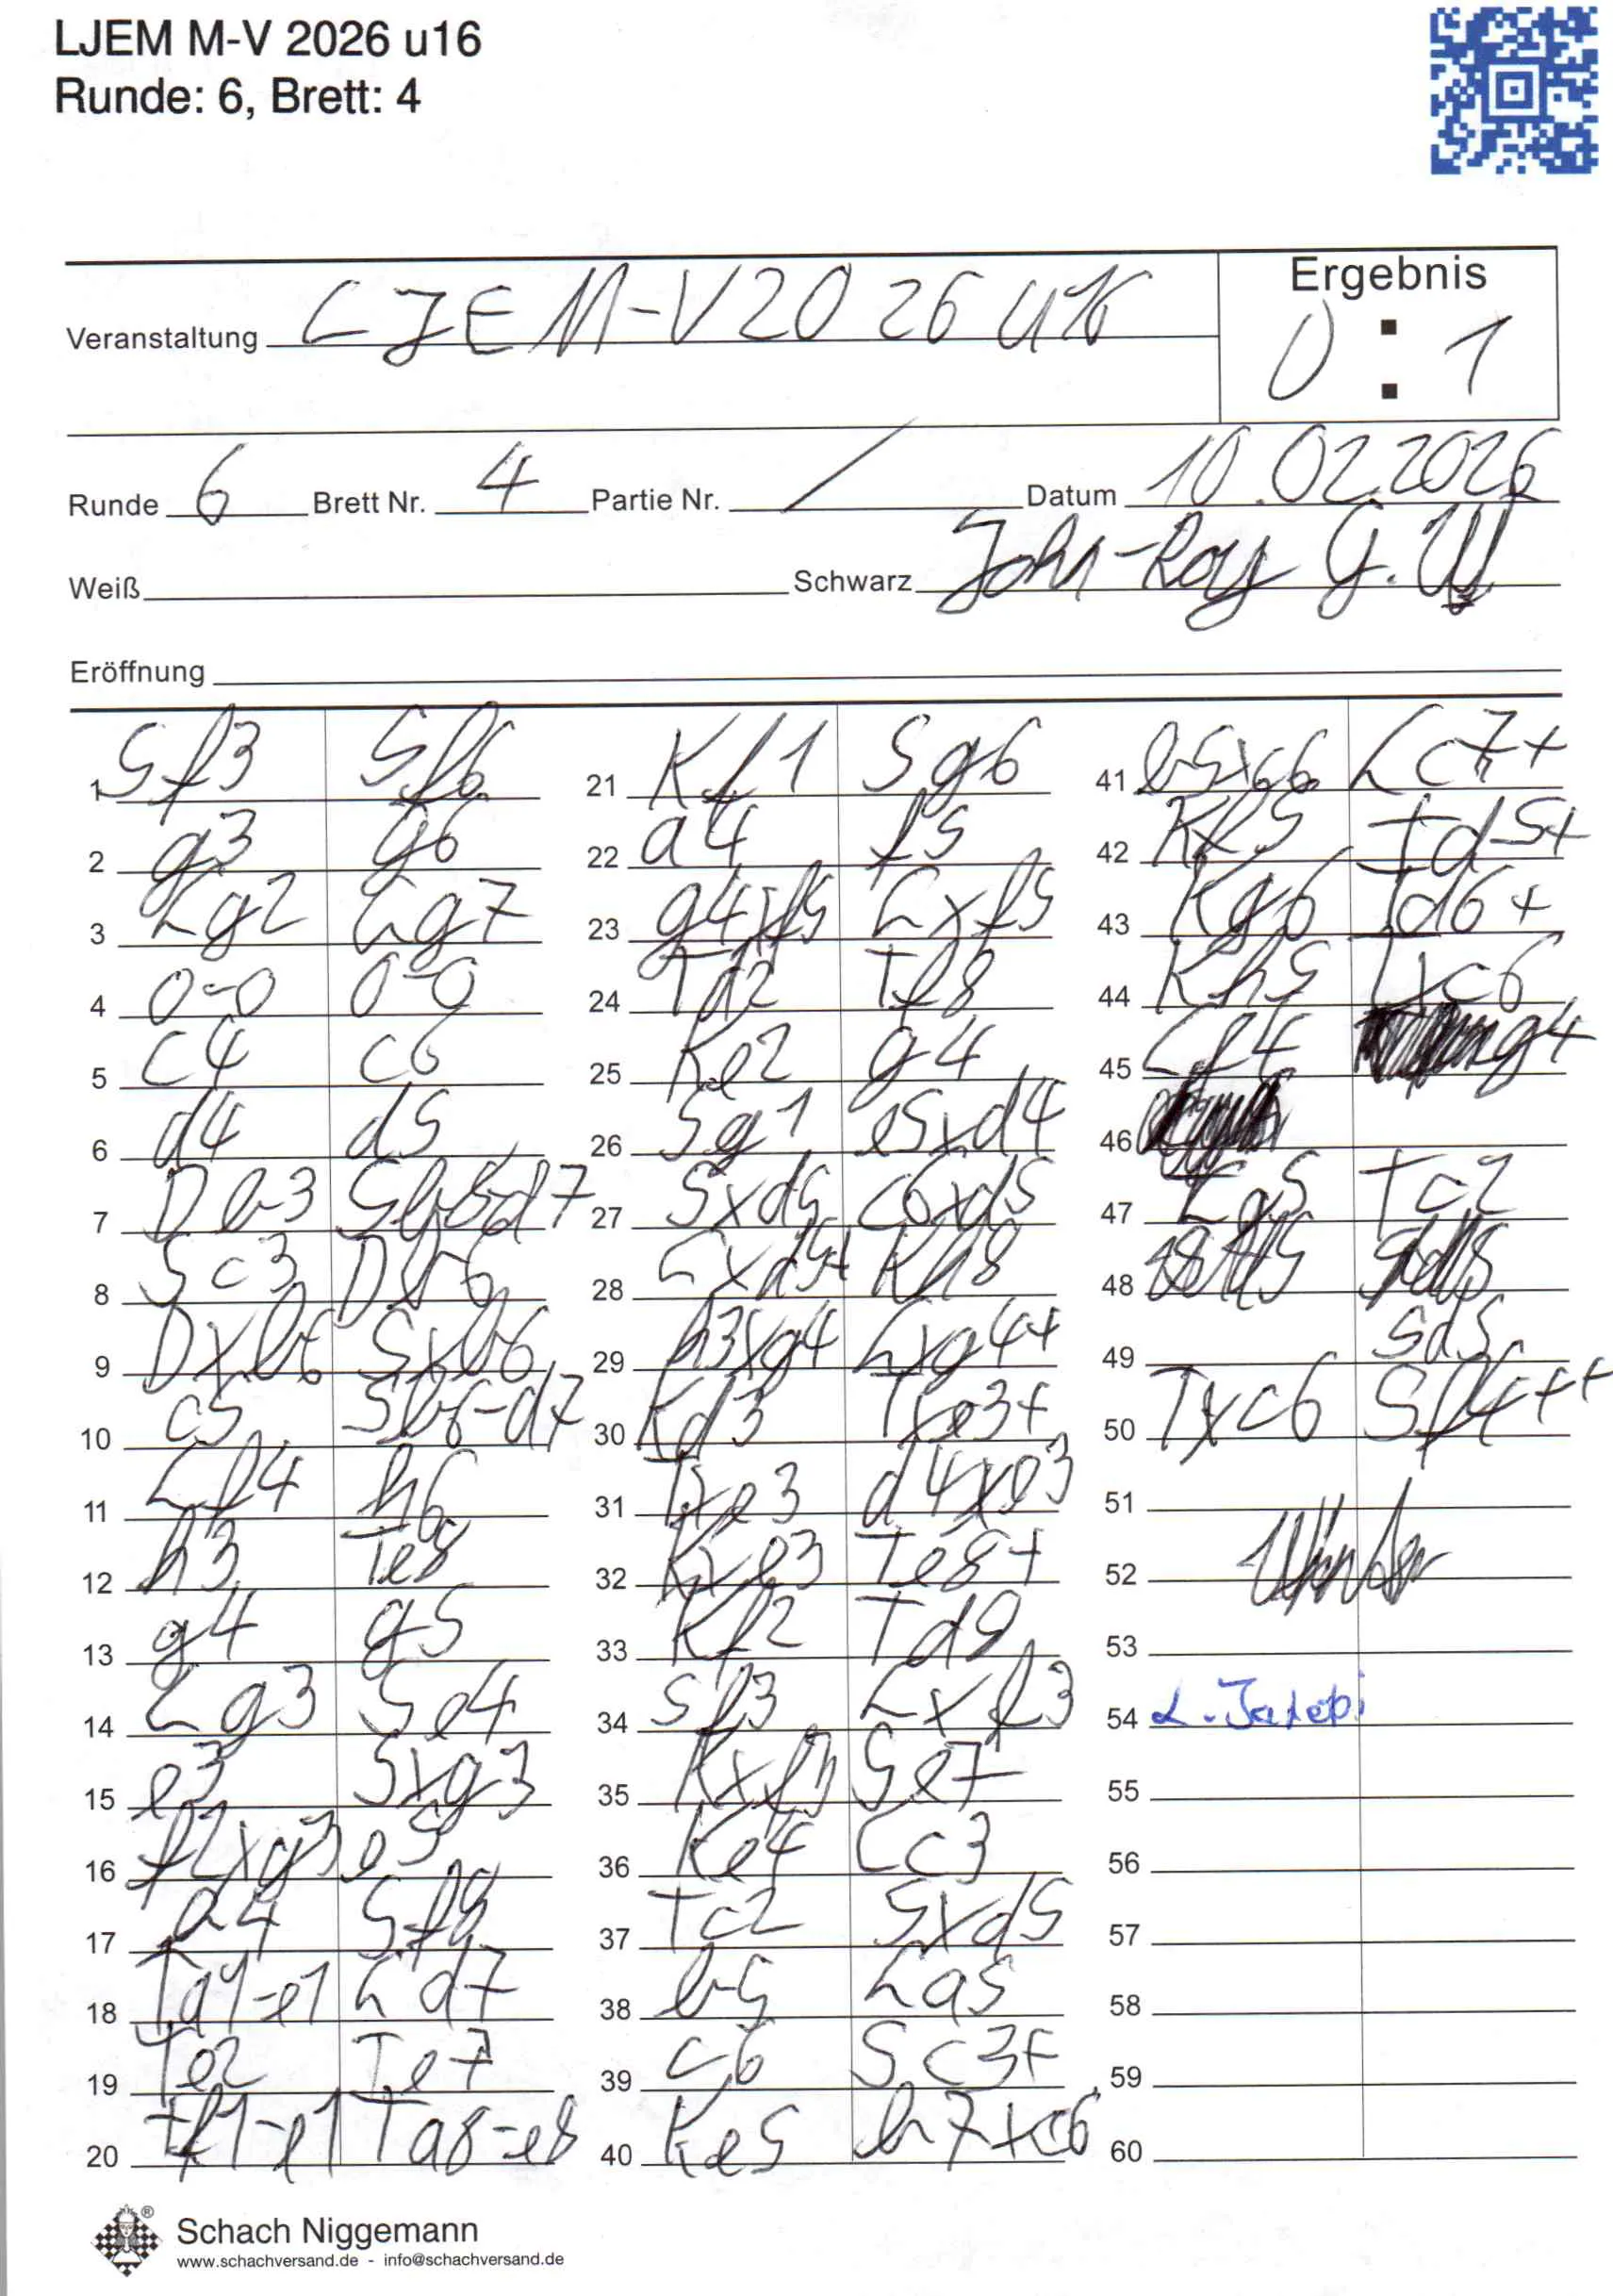 LJEM M-V 2026 u16
Runde: 6, Brett: 4
Veranstaltung LJEM-V2026 u16
Ergebnis
0 : 1
Runde 6 Brett Nr. 4 Partie Nr. / Datum 10.02.2026
Weiß Schwarz John-Roy G. W
Eröffnung
1 Sf3 Sf6
2 g3 g6
3 Lg2 Lg7
4 0-0 0-0
5 c4 c6
6 d4 d5
7 Db3 Sb8d7
8 Sc3 Db6
9 Dxb6 Sxb6
10 c5 Sb6-d7
11 Lf4 h6
12 h3 Te8
13 g4 g5
14 Lg3 Se4
15 e3 Sxg3
16 f2xg3 e5
17 a4 Sf8
18 Ta1-e1 Ld7
19 Te2 Te7
20 Tf1-e1 Ta8-e8
21 Kf1 Sg6
22 a4 f5
23 g4xf5 Lxf5
24 Td2 Tf8
25 Ke2 g4
26 Sg1 e5xd4
27 Sxd5 c6xd5
28 Lxd5+ Kh8
29 h3xg4 Lxg4+
30 Kd3 Txe3+
31 Txe3 d4xe3
32 Kxe3 Te8+
33 Kf2 Td8
34 Sf3 Lxf3
35 Kxf3 Se7
36 Ke4 Lc3
37 Tc2 Sxd5
38 b5 La5
39 c6 Sc3+
40 Ke5 b7xc6
41 b5xc6 Lc7+
42 Kf5 Td5+
43 Kg6 Td6+
44 Kh5 Txc6
45 Lf4 g4
46
47 La5 Tc2
48
49 Sd5
50 Txc6 Sf4++
51
52
53
54
55
56
57
58
59
60
Schach Niggemann
www.schachversand.de - info@schachversand.de